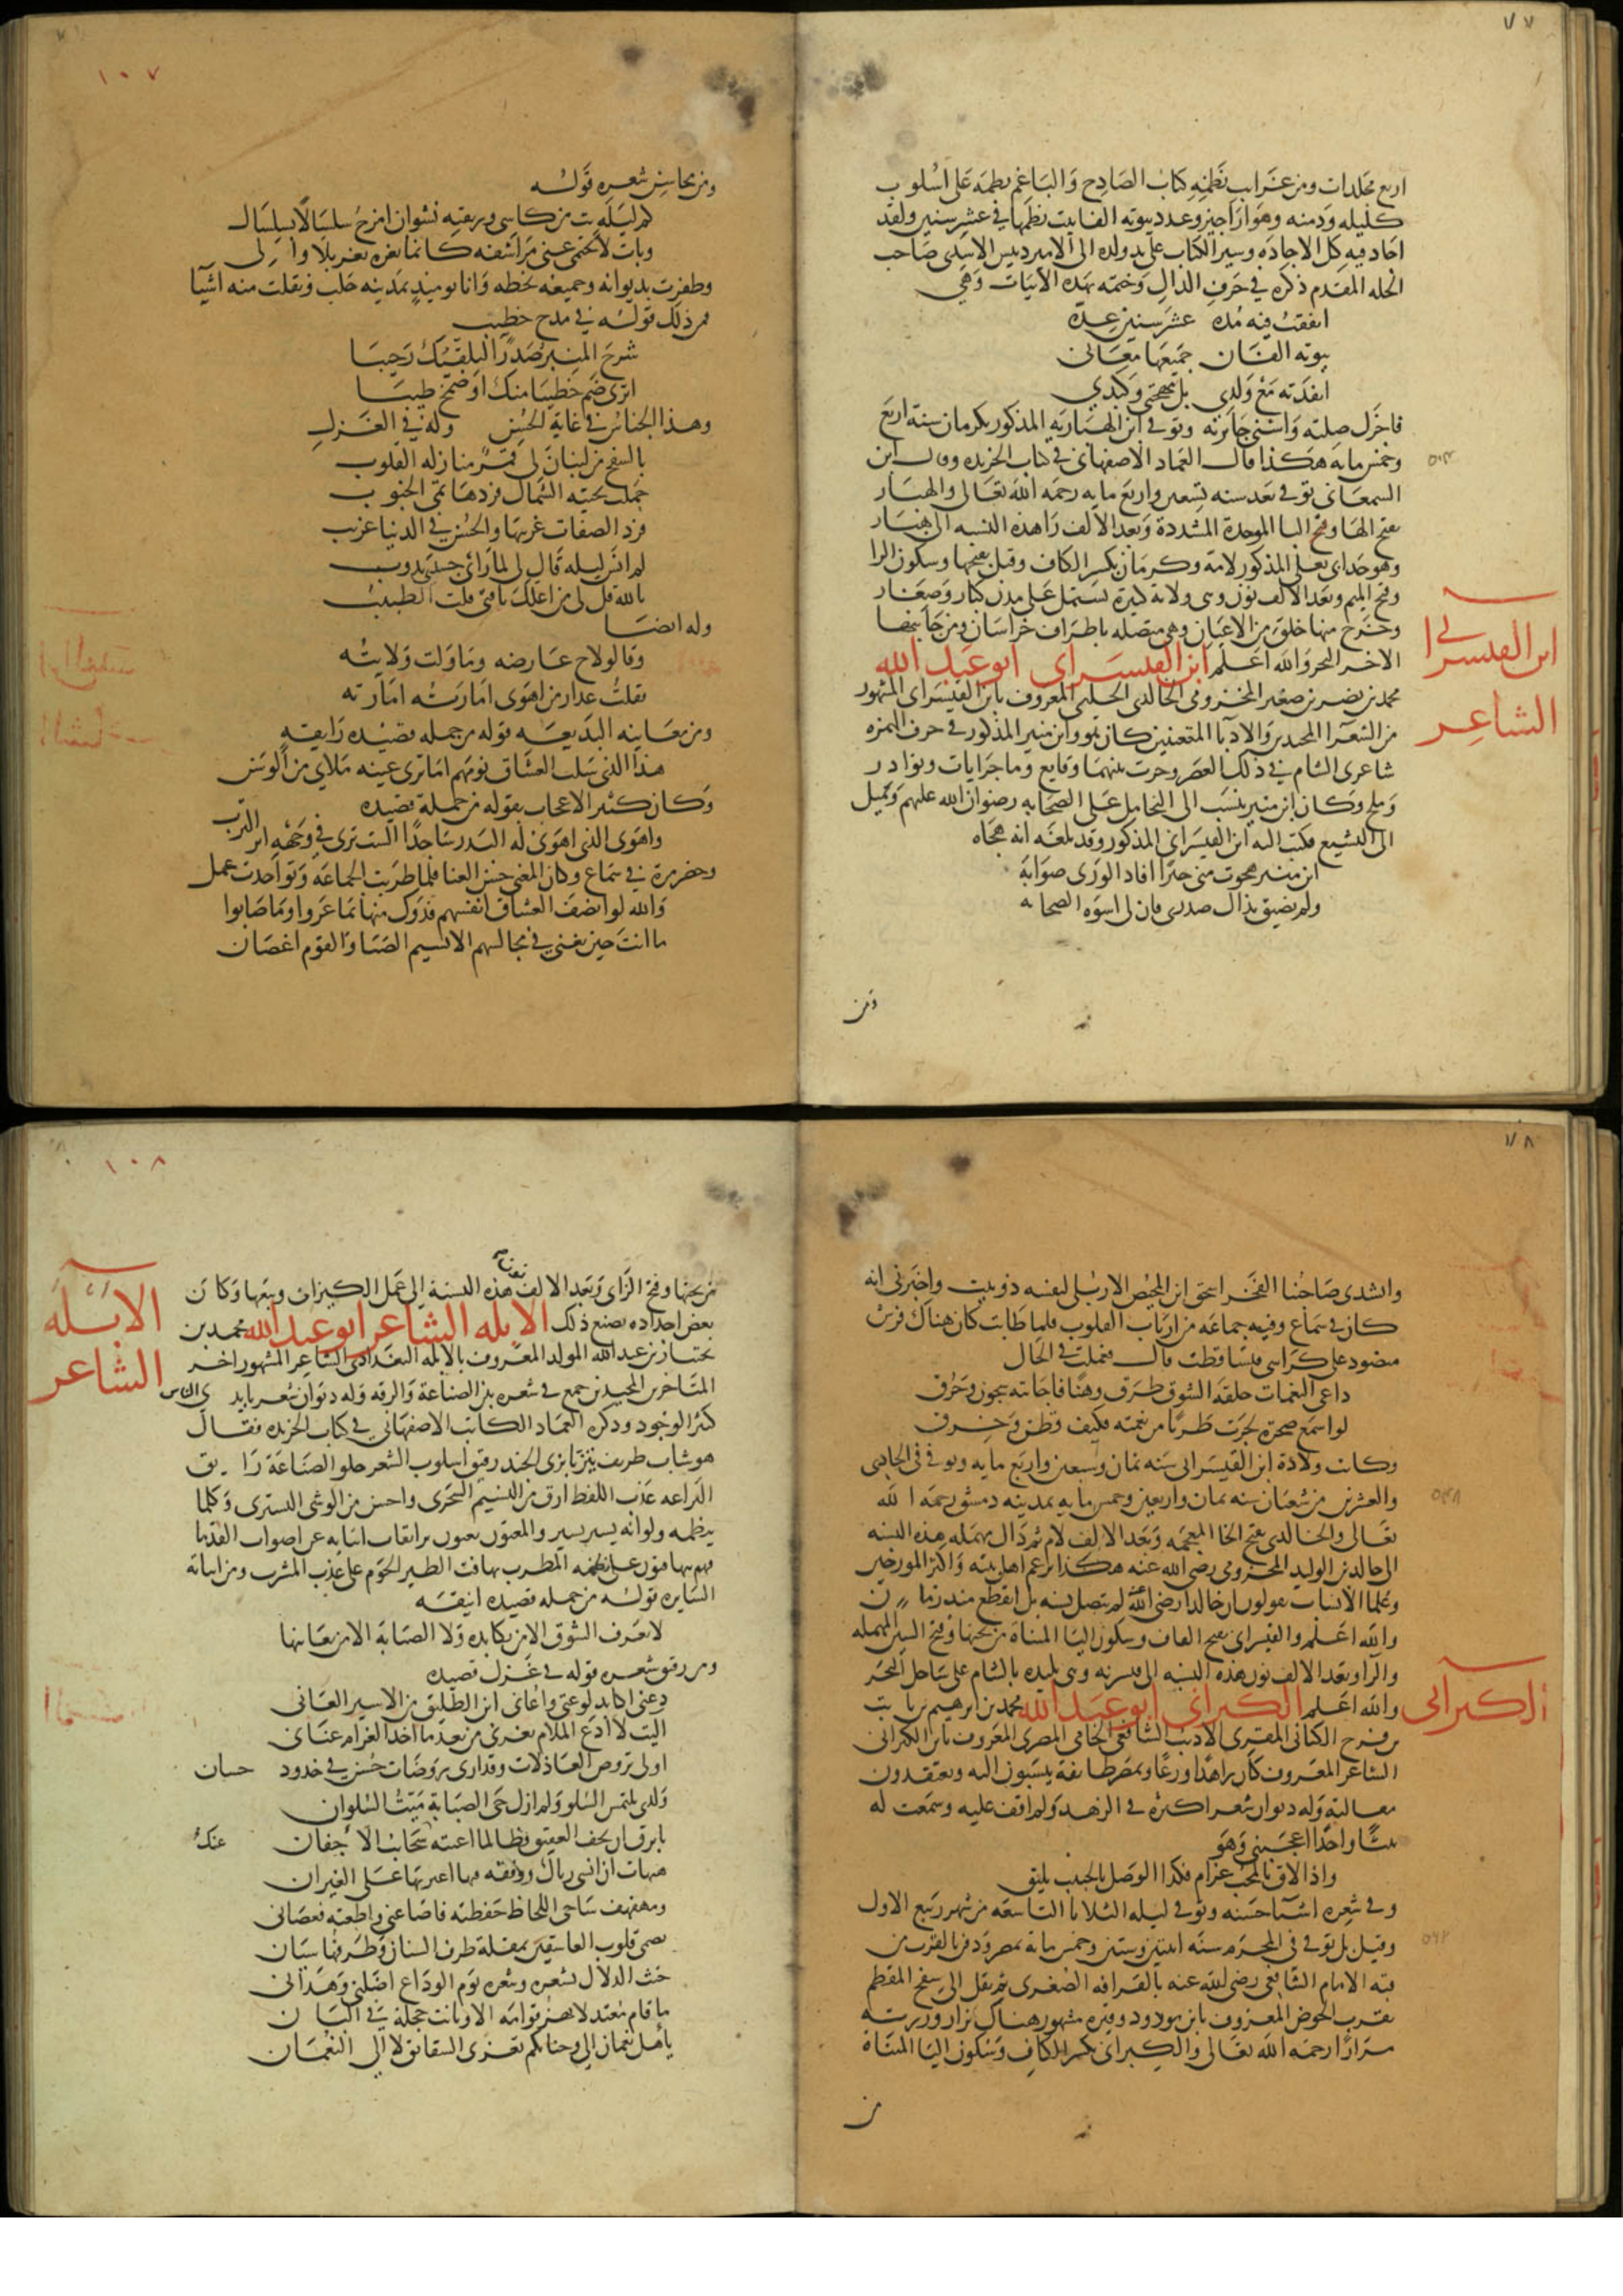 ٧٧
اربع مجلدات ومن غرايب نظمه كتاب الصادح والباغم نظمه على اسلوب
كليله ودمنه وهو اراجيز وعدد بيوته الفا بيت نظمها في عشر سنين ولقد
اجاد فيه كل الاجاده وسير الكتاب على يد ولده الى الامير دبيس الاسدى صاحب
الحله المقدم ذكره في حرف الدال وختمه بهذه الابيات وهي
انفقت فيه مده عشر سنين عدة
بيوته الفان جميعها معانى
انفذته مع ولدي بل مهجتي وكبدي
فاجزل صلته واسنى جائزته وتوفي ابن الهبارية المذكور بكرمان سنة اربع
وخمس مايه هكذا قال العماد الاصفهاني في كتاب الخريده وقال ابن
السمعاني توفي بعد سنه تسعين واربع مايه رحمه الله تعالى والهبار
بفتح الها وفتح البا الموحدة المشددة وبعد الالف را هذه النسبه الى هبار
وهو جد ابي يعلى المذكور لامه وكرمان بكسر الكاف وقيل بفتحها وسكون الرا
وفتح الميم وبعد الالف نون وهى ولاية كبيرة تشتمل على مدن كبار وصغار
وخرج منها خلق من الاعيان وهى متصله باطراف خراسان ومن جانبها
الاخر البحر والله اعلم ابن القيسراى ابو عبد الله
ابن القيسرانى
الشاعر
محمد بن نصر بن صغير المخزومى الخالدى الحلبى المعروف بابن القيسراى المشهور
من الشعرا المجيدين والادبا المتفننين كان هو وابن منير المذكور في حرف الهمزه
شاعرى الشام في ذلك العصر وجرت بينهما وقايع وماجرايات ونوادر
وملح وكان ابن منير ينسب الى التحامل على الصحابه رضوان الله عليهم ويميل
الى التشيع فكتب اليه ابن القيسراني المذكور وقد بلغه انه هجاه
ابن منير هجوت مني حبرا افاد الورى صوابه
ولم تضيق بذاك صدرى فان لى اسوه الصحابه
ومن
١٠٧
ومن محاسن شعره قوله
كم ليله بت من كاسي وريقته نشوان امزح سلسالا بسلسال
وبات لا تحتمى عنى مراشفه كانما ثغره ثغر بلا والى
وظفرت بديوانه وجميعه بخطه وانا يوميذ بمدينه حلب ونقلت منه اشيا
فمن ذلك قوله في مدح خطيب
شرح المنبر صدرا لتلقيك رحيبا
اترى ضم خطيبا منك او ضمخ طيبا
وهذا الجناس في غاية الحسن وله في الغزل
بالسفح من لبنان لى قمر منازله القلوب
حملت تحيته الشمال فردها عنى الجنوب
فرد الصفات غريبها والحسن في الدنيا غريب
لم انس ليله قال لى لما راى جسدى يذوب
بالله قل لى من اعلك يا فتى قلت الطبيب
وله ايضا
وقالو لاح عارضه وما ولت ولايته
فقلت عذار من اهوى امارته امارته
ومن معانيه البديعه قوله من جمله قصيده رايقه
هذا الذى سلب العشاق نومهم اما ترى عينه ملاى من الوسن
وكان كثير الاعجاب بقوله من جملة قصيده
واهوى الذى اهوى له البدر ساجدا الست ترى في وجهه اثر الترب
وحضر مرة في سماع وكان المغني حسن الغنا فلما طربت الجماعه وتواجدت عمل
والله لو انصف العشاق انفسهم فدوك منها بما عزوا وما صانوا
ما انت حين تغني في مجالسهم الا نسيم الصبا والقوم اغصان
٧٨
وانشدى صاحبنا الفخر اسحق ابن المختص الاربلى لنفسه دوبيت واخبرنى انه
كان في سماع وفيه جماعه من ارباب القلوب فلما طابت كان هناك فرش
منضود على كراسى فتساقطت قال فعملت في الحال
داعى النغمات حلقه الشوق طرق وهنا فاجابته شجون وحرق
لو اسمع صخرة لخرت طربا من نغمته فكيف قطن وخرق
وكانت ولادة ابن القيسرانى سنه ثمان وسبعين واربع مايه وتوفى في الحادى
والعشرين من شعبان سنه ثمان واربعين وخمس مايه بمدينه دمشق رحمه الله
تعالى والخالدى بفتح الخا المعجمه وبعد الالف لام ثم دال مهمله هذه النسبه
الى خالد بن الوليد المخزومى رضى الله عنه هكذا يزعم اهل بيته واكثر المورخين
وعلما الانساب يقولون ان خالدا رضى الله لم يتصل نسبه بل انقطع منذ زمان
والله اعلم والقيسرانى بفتح القاف وسكون اليا المثناة من تحتها وفتح السين المهمله
والرا وبعد الالف نون هذه النسبه الى قيسريه وهى بليده بالشام على ساحل البحر
والله اعلم الكيزانى ابو عبد الله محمد بن ابرهيم بن ثابت
الكيزانى
بن فرح الكنانى المقرى الاديب الشافعى الحامى المصرى المعروف بابن الكيزانى
الشاعر المعروف كان زاهدا ورعا وبمصر طايفة ينسبون اليه ويعتقدون
مقالته وله ديوان شعر اكثره في الزهد ولم اقف عليه وسمعت له
بيتا واحدا اعجبنى وهو
واذا لاق بالمحب غرام فكذا الوصل بالحبيب يليق
وفي شعره اشيا حسنه وتوفي ليله الثلاثا التاسعه من شهر ربيع الاول
وقيل بل توفي في المحرم سنه اثنتين وستين وخمس مايه بمصر ودفن بالقرب من
قبه الامام الشافعى رضى الله عنه بالقرافه الصغرى ثم نقل الى سفح المقطم
بقرب الحوض المعروف بابن مودود وقبره مشهور هناك يزار وزرته
مرارا رحمه الله تعالى والكيزانى بكسر الكاف وسكون اليا المثناة
من
١٠٨
من تحتها وفتح الزاى وبعد الالف نون هذه النسبة الى عمل الكيزان وبيعها وكان
بعض اجداده يصنع ذلك الابله الشاعر ابو عبد الله محمد بن
الابله
الشاعر
بختيار بن عبد الله المولد المعروف بالابله البغدادى الشاعر المشهور احد
المتاخرين المجيدين جمع في شعره بين الصناعة والرقه وله ديوان شعر بايدى الناس
كثير الوجود وذكره العماد الكاتب الاصفهاني في كتاب الخريده فقال
هو شاب ظريف يتزيا بزى الجند رقيق اسلوب الشعر حلو الصناعة رايق
البراعه عذب اللفظ ارق من النسيم السحرى واحسن من الوشى التسترى وكلما
ينظمه ولو انه يسير يسير والمغنون يغنون برايقات ابياته عن اصوات القدما
فهم يتهافتون على نظمه المطرب تهافت الطير الحوم على عذب المشرب ومن ابياته
السايره قوله من جمله قصيده انيقه
لا يعرف الشوق الا من يكابده ولا الصبابة الا من يعانيها
ومن رقيق شعره قوله في غزل قصيده
دعنى اكابد لوعتي واعانى اين الطليق من الاسير العانى
اليت لا ادع الملام يغرنى من بعد ما اخذ الغرام عنانى
اولى تروض العاذلات وقد ارى روضات حسن في خدود حسان
ولدى يلتمس السلو ولم ازل حى الصبابة ميت السلوان
يا برق ان تجف العقيق فطالما اغنته عنك سحائب الاجفان
هيهات ان انسى رباك ووقفه فيها اغير بها على الغيران
ومهفهف ساجى اللحاظ حفظته فاضاعنى واطعته فعصانى
يصمى قلوب العاشقين بمقلة طرف السنان وطرفها سيان
خنث الدلال بشعره وبثغره يوم الوداع اضلني وهدانى
ما قام معتدلا يهز قوامه الا وبانت خجلة في البان
يا اهل نعمان الى وجناتكم تعزى الشقايق لا الى النعمان